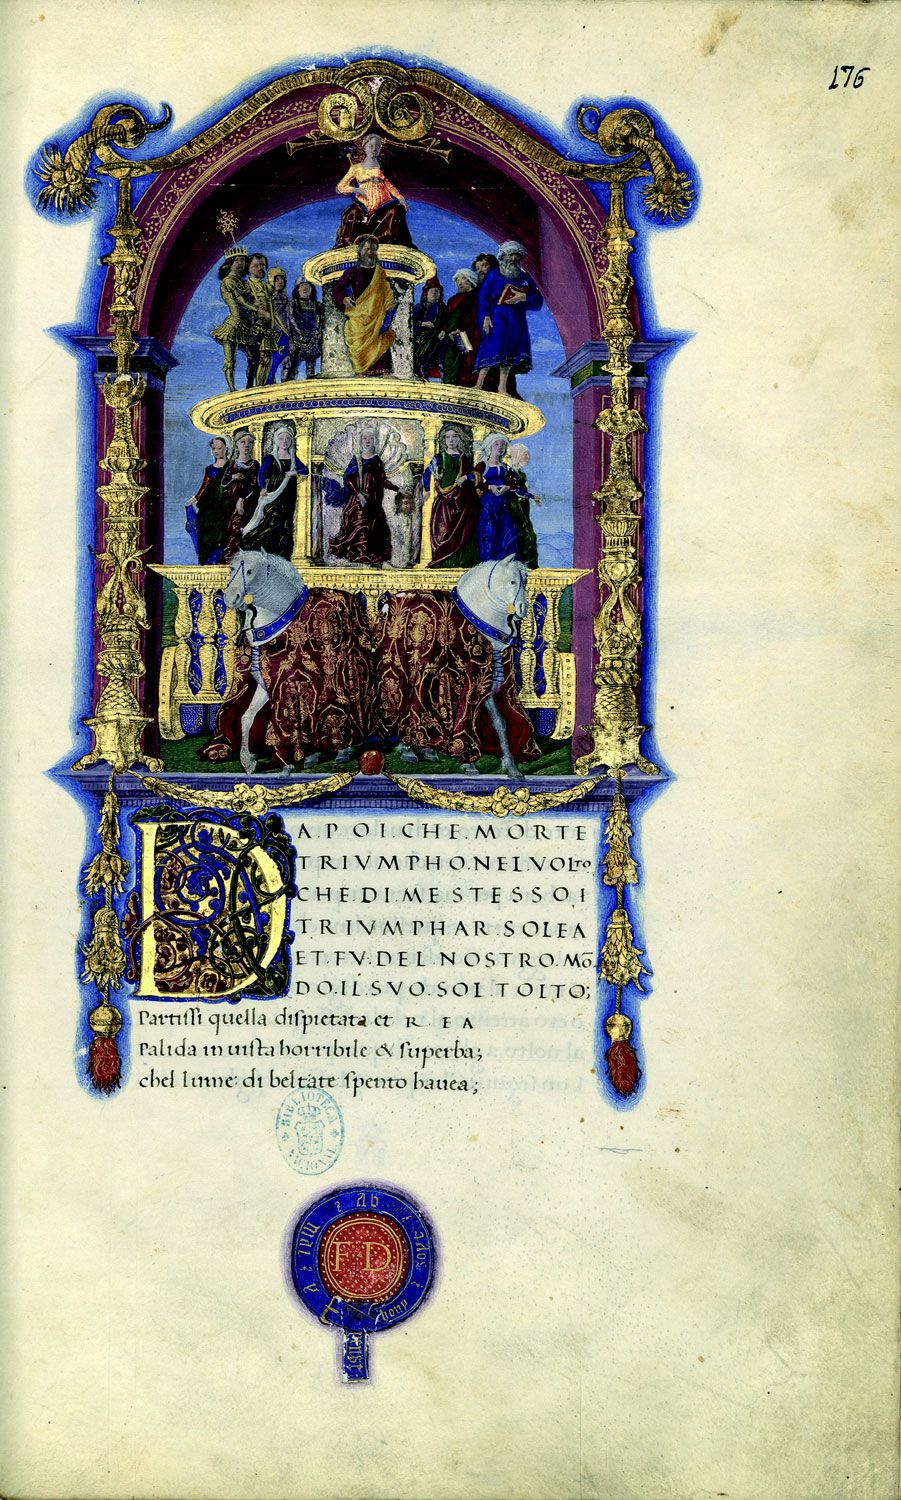 176
DA.POI.CHE.MORTE
TRIVMPHO.NEL.VOLTO
CHE.DI.ME STESSO I
TRIVMPHAR.SOLEA
ET.FV.DEL NOSTRO.MŌ
DO.IL.SVO.SOL TOLTO;
Partissi quella dispietata et REA
Palida in uista horribile & superba;
chel lume: di beltate spento hauea;
BIBLIOTECA NACIONAL
FD